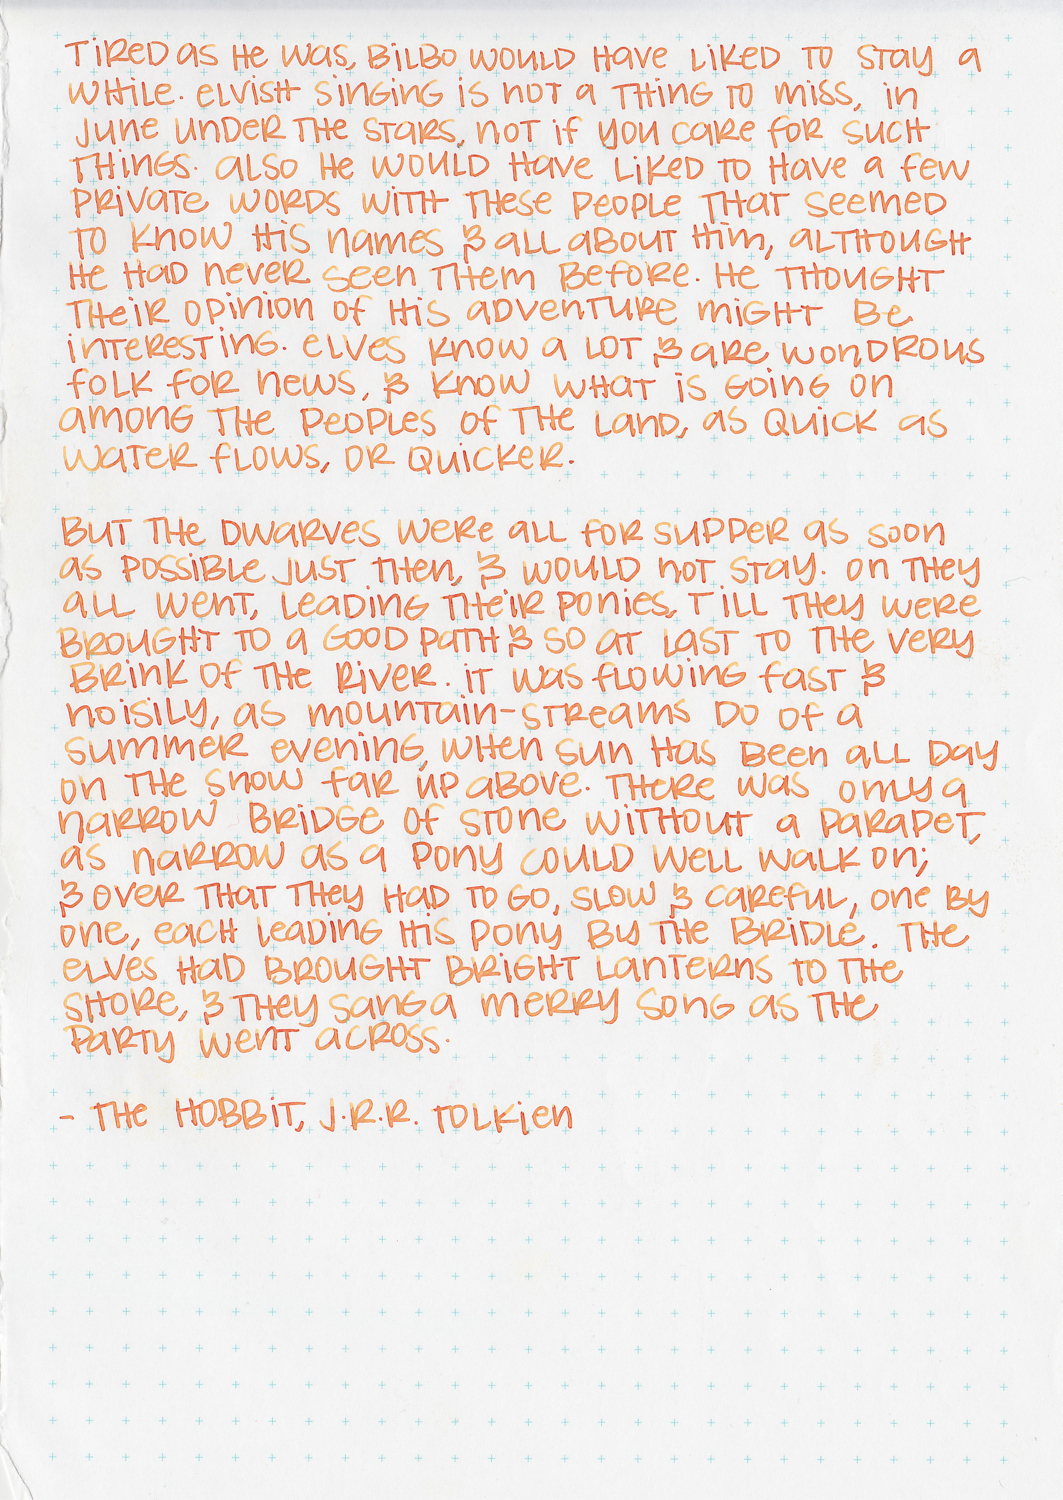 Tired as he was, Bilbo would have liked to stay a
while. Elvish singing is not a thing to miss, in
June under the stars, not if you care for such
things. Also he would have liked to have a few
private words with these people that seemed
to know his names & all about him, although
he had never seen them before. He thought
their opinion of his adventure might be
interesting. Elves know a lot & are wondrous
folk for news, & know what is going on
among the peoples of the land, as quick as
water flows, or quicker.

But the dwarves were all for supper as soon
as possible just then, & would not stay. On they
all went, leading their ponies, till they were
brought to a good path & so at last to the very
brink of the river. It was flowing fast &
noisily, as mountain-streams do of a
summer evening, when sun has been all day
on the snow far up above. There was only a
narrow bridge of stone without a parapet,
as narrow as a pony could well walk on;
& over that they had to go, slow & careful, one by
one, each leading his pony by the bridle. The
elves had brought bright lanterns to the
shore, & they sang a merry song as the
party went across.

- The Hobbit, J.R.R. Tolkien